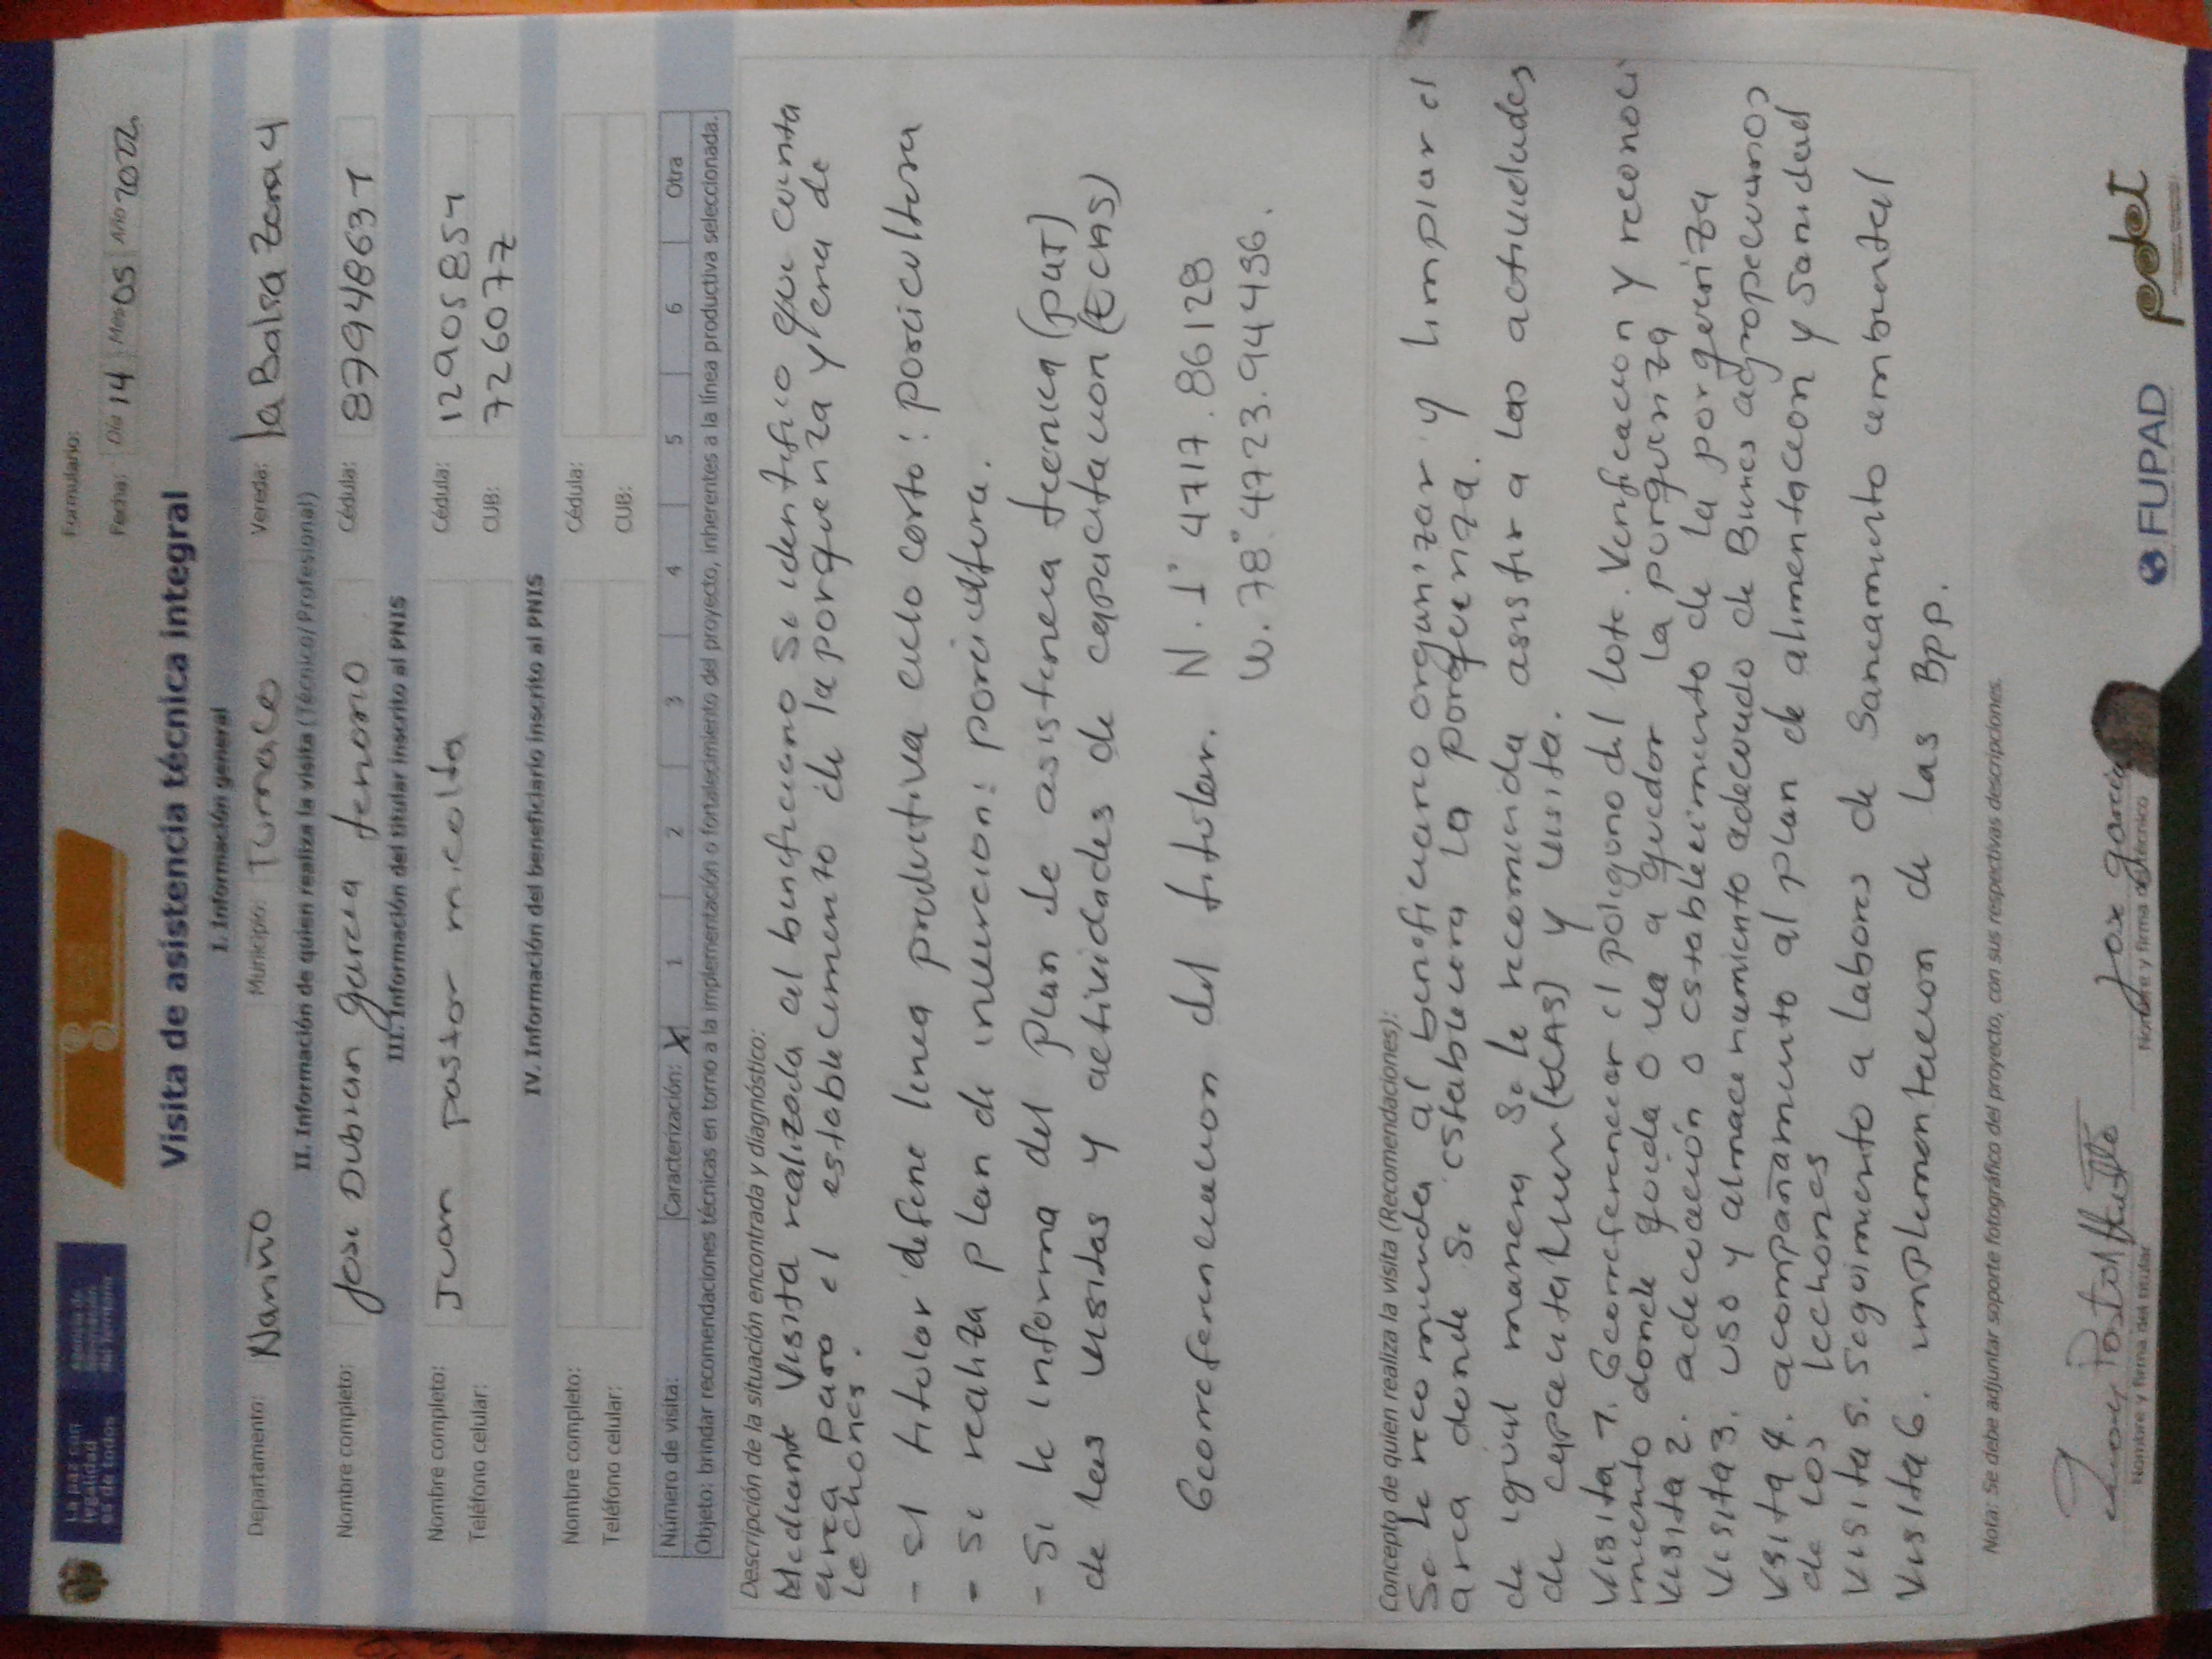 La paz con
legalidad
es de todos
Agencia de
Renovación
del Territorio
Formulario:
Fecha: Día 14 Mes 05 Año 2022
Visita de asistencia técnica integral
I. Información general
Departamento: Nariño Municipio: Tumaco Vereda: la Balsa Zona 4
II. Información de quien realiza la visita (Técnico/ Profesional)
Nombre completo: Jose Dubian garcia tenorio Cédula: 87948631
III. Información del titular inscrito al PNIS
Nombre completo: Juan pastor micolta Cédula: 12905854
Teléfono celular: CUB: 7726077
IV. Información del beneficiario inscrito al PNIS
Nombre completo: Cédula:
Teléfono celular: CUB:
Número de visita: Caracterización: X 1 2 3 4 5 6 Otra
Objeto: brindar recomendaciones técnicas en torno a la implementación o fortalecimiento del proyecto, inherentes a la línea productiva seleccionada.
Descripción de la situación encontrada y diagnóstico:
Mediante visita realizada al beneficiario se identifico que cuenta
area para el establecimiento de la porqueriza y cria de
lechones.
- El titular define linea productiva ciclo corto: poricultura
- Se realiza plan de inversion: poricultura.
- Se le informa del plan de asistencia tecnica (PAT)
de las visitas y actividades de capacitacion (ECAS)
Georreferenciacion del titular. N. 1° 4717.86128
W. 78° 4723.94436.
Concepto de quien realiza la visita (Recomendaciones):
Se le recomienda al beneficiario organizar y limpiar el
area donde se establecera la porqueriza.
de igual manera se le recomienda asistir a las actividades
de capacitacion (ECAS) y visita.
Visita 1. Georreferenciar el poligono del lote. Verificacion y reconoci
miento donde queda o va a quedar la porqueriza
Visita 2. adecuación o establecimiento de la porqueriza
Visita 3. uso y almacenamiento adecuado de Bienes agropecuarios
Visita 4. acompañamiento al plan de alimentacion y sanidad
de los lechones
Visita 5. Seguimiento a labores de Saneamiento ambiental
Visita 6. implementacion de las BPP.
Nota: Se debe adjuntar soporte fotográfico del proyecto, con sus respectivas descripciones.
Juan Pastor Micolta
Nombre y firma del titular
Jose garcia
Nombre y firma del técnico
FUPAD
pdet